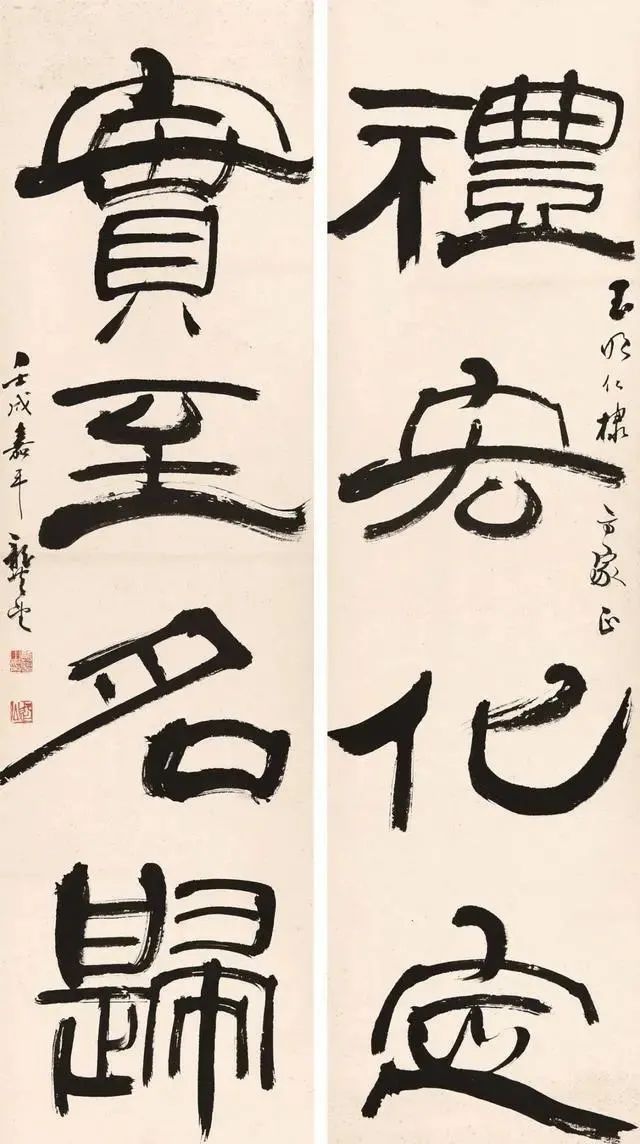 禮宏化定
玉明仁棣 方家正
實至名歸
壬戌嘉平 龔望